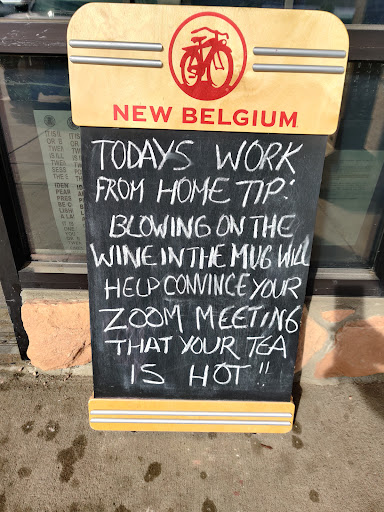 NEW BELGIUM
TODAYS WORK
FROM HOME TIP:
BLOWING ON THE
WINE IN THE MUG WILL
HELP CONVINCE YOUR
ZOOM MEETING
THAT YOUR TEA
IS HOT !!